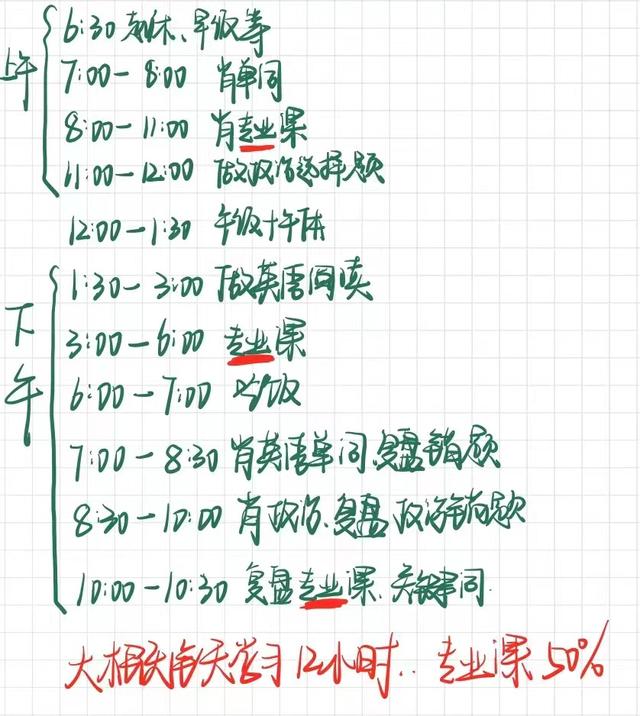 上午
6:30 起床、早饭等
7:00-8:00 背单词
8:00-11:00 背专业课
11:00-12:00 做政治选择题
12:00-1:30 午饭+午休
下午
1:30-3:00 做英语阅读
3:00-6:00 专业课
6:00-7:00 吃饭
7:00-8:30 背英语单词,复盘错题
8:30-10:00 背政治、复盘政治错题
10:00-10:30 复盘专业课、关键词
大概每天学习12小时.. 专业课50%